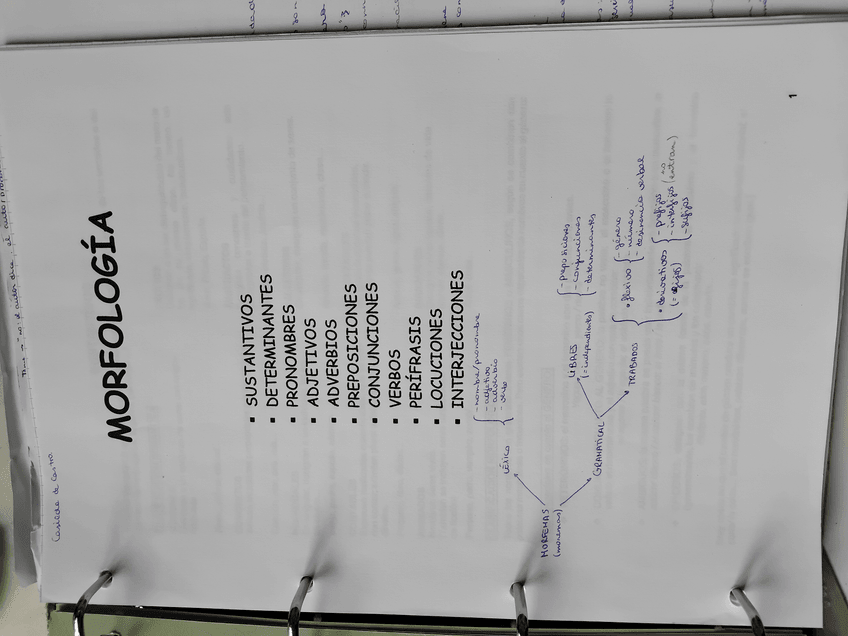 MORFOLOGÍA
▪ SUSTANTIVOS
▪ DETERMINANTES
▪ PRONOMBRES
▪ ADJETIVOS
▪ ADVERBIOS
▪ PREPOSICIONES
▪ CONJUNCIONES
▪ VERBOS
▪ PERÍFRASIS
▪ LOCUCIONES
▪ INTERJECCIONES
MORFEMAS
(monemas)
LÉXICO
- nombre/pronombre
- adjetivo
- adverbio
- verbo
GRAMATICAL
LIBRES
(= independientes)
- preposiciones
- conjunciones
- determinantes
TRABADOS
• flexivo
- género
- número
- desinencia verbal
• derivativos
(= afijos)
- prefijos
- interfijos (no entran)
- sufijos
1